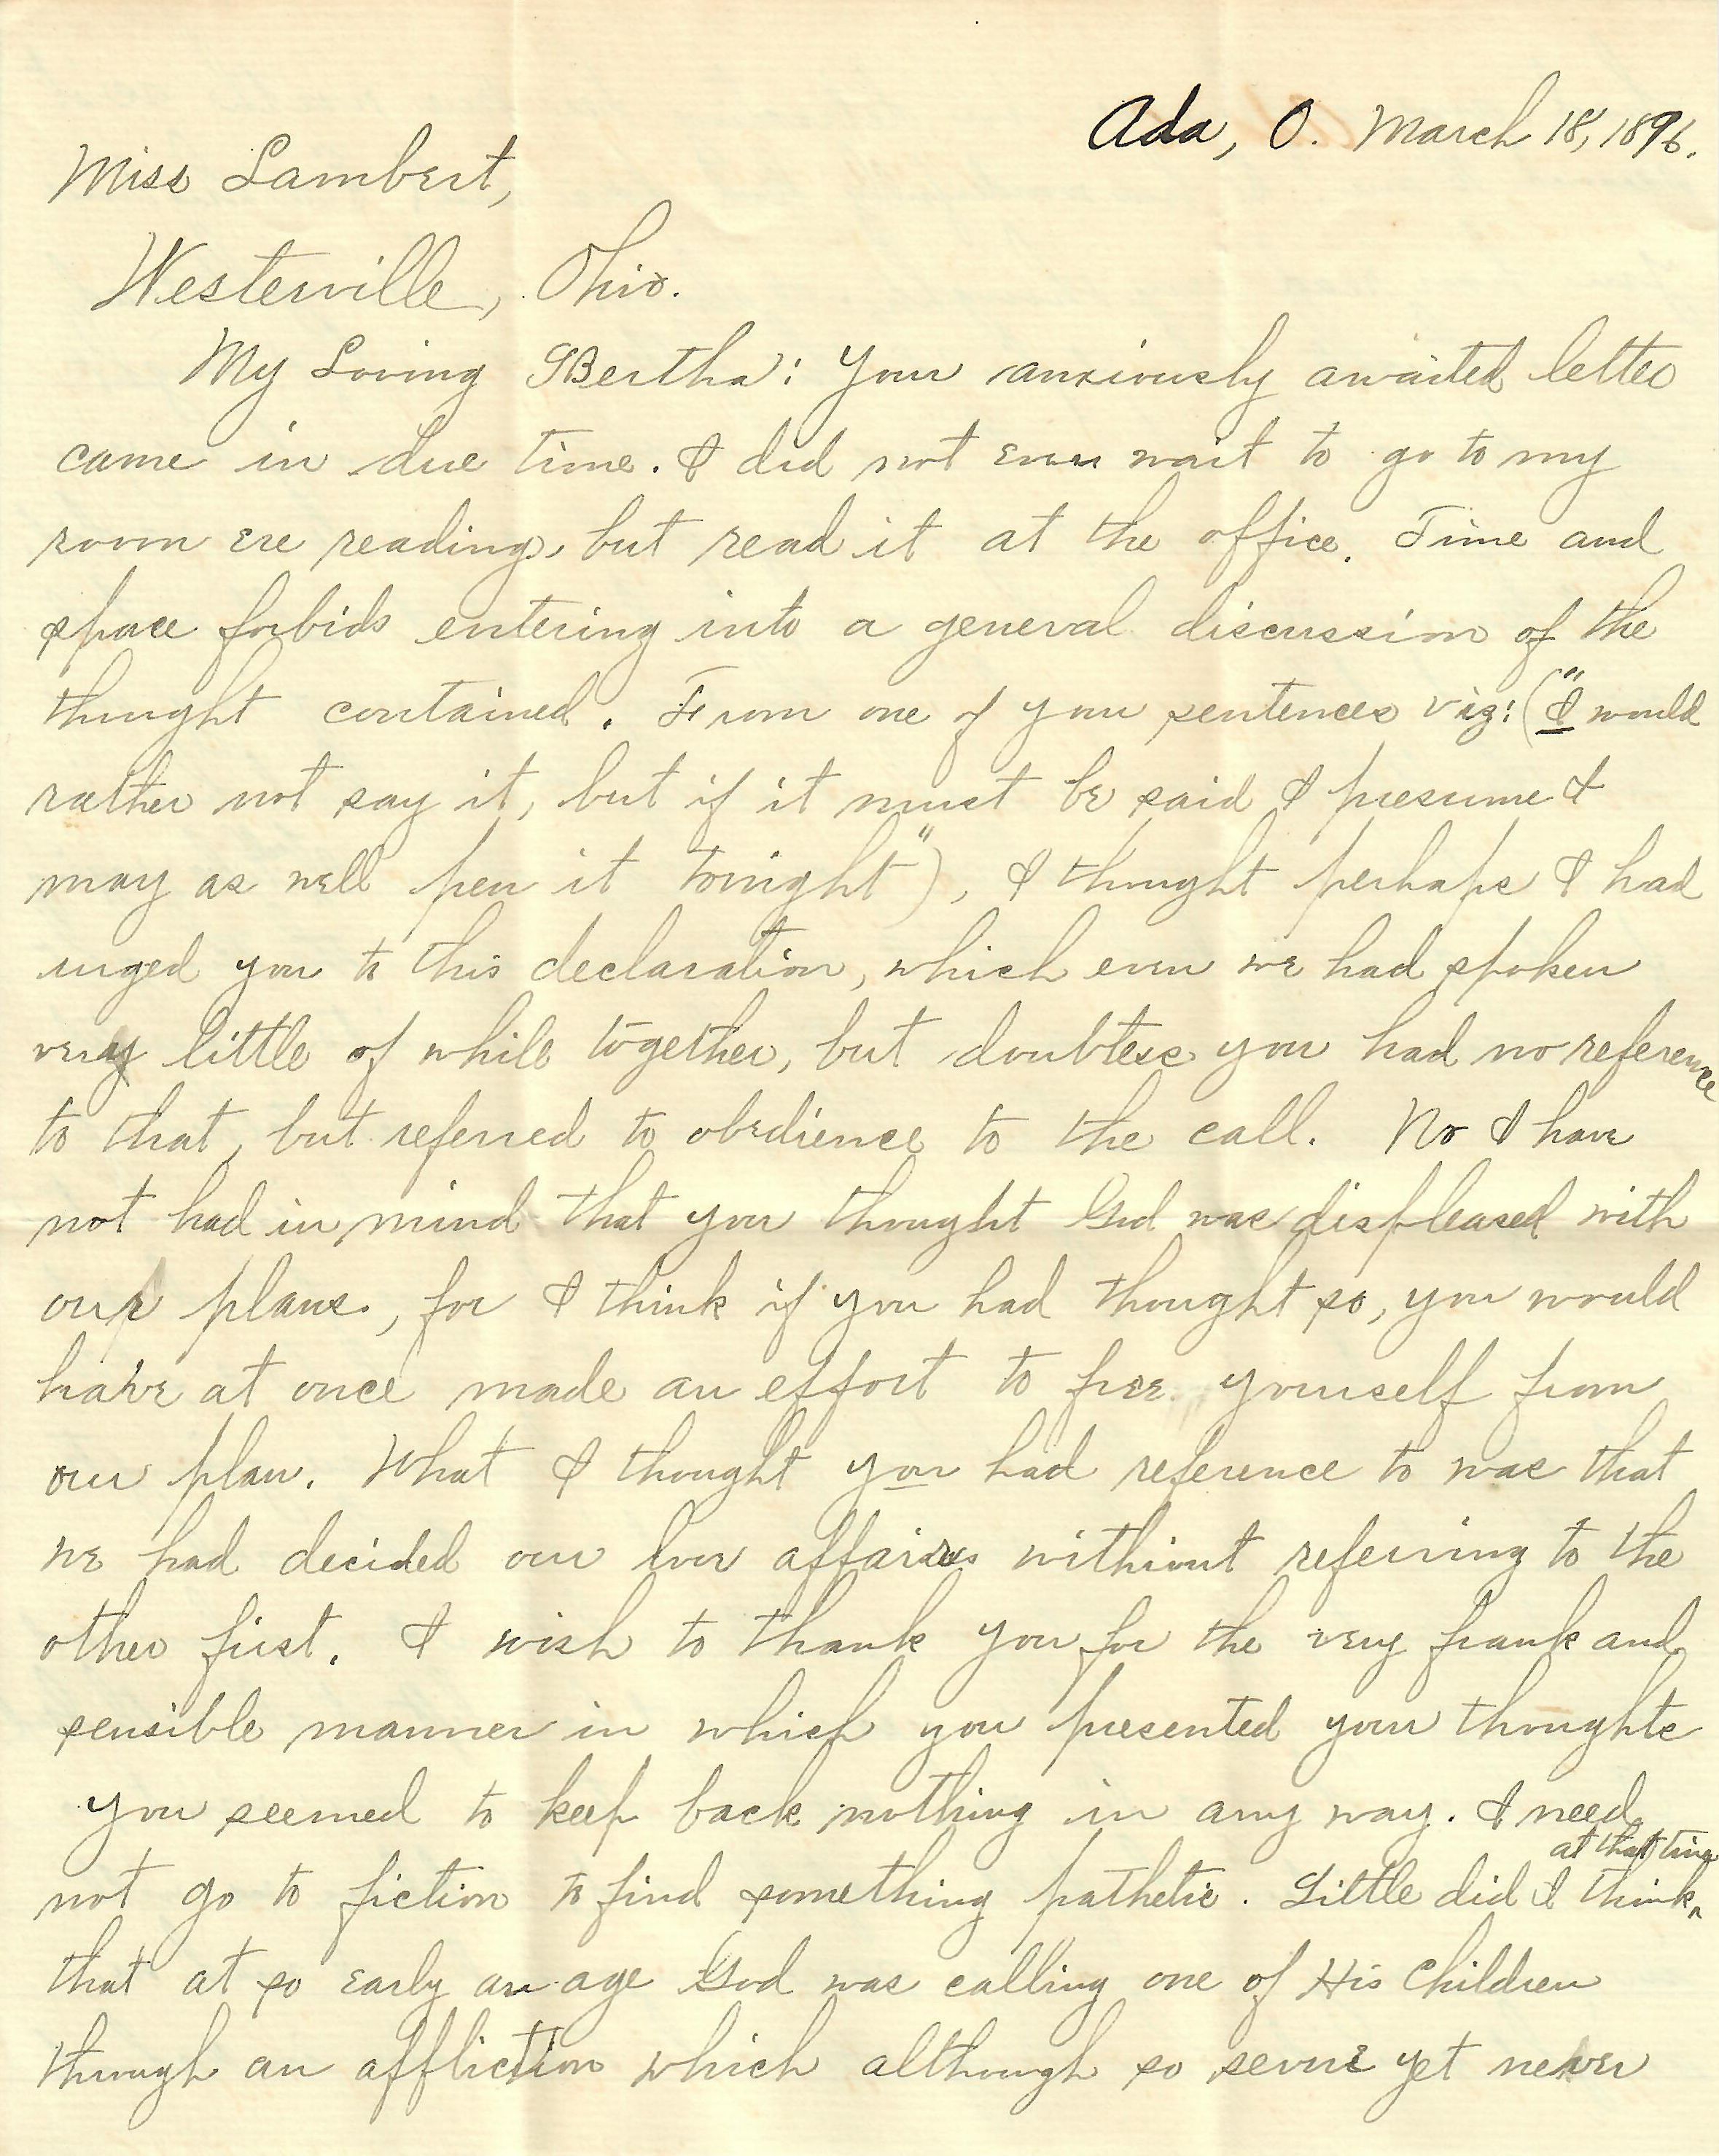 Ada, O. March 18, 1896.
Miss Lambert,
Westerville, Ohio.
My Loving Bertha: Your anxiously awaited letter
came in due time. I did not even wait to go to my
room ere reading, but read it at the office. Time and
space forbids entering into a general discussion of the
thought contained. From one of your sentences viz: ("I would
rather not say it, but if it must be said I presume I
may as well pen it tonight"), I thought perhaps I had
urged you to this declaration, which even we had spoken
very little of while together, but doubtless you had no reference
to that, but referred to obedience to the call. No I have
not had in mind that you thought God was displeased with
our plans, for I think if you had thought so, you would
have at once made an effort to free yourself from
our plan. What I thought you had reference to was that
we had decided our love affairs without referring to the
other first. I wish to thank you for the very frank and
sensible manner in which you presented your thoughts
you seemed to keep back nothing in any way. I need
at that time
not go to fiction to find something pathetic. Little did I think
that at so early an age God was calling one of His Children
through an affliction which although so severe yet never